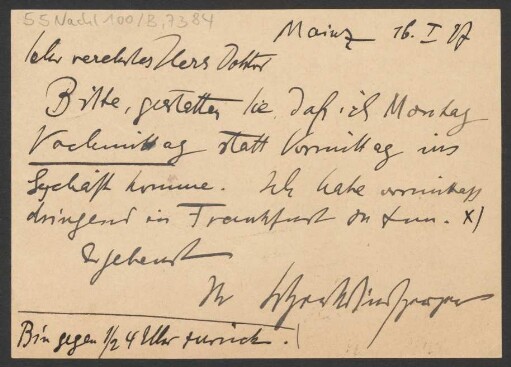 55 Nachl 100/B,7384
Mainz 16. I 27
Sehr verehrter Herr Doktor
Bitte, gestatten Sie, daß ich Montag
Nachmittag statt Vormittag ins
Geschäft komme. Ich habe vormittags
dringend in Frankfurt zu tun. x)
Ergebenst
Ihr
Bin gegen 1/2 4 Uhr zurück.